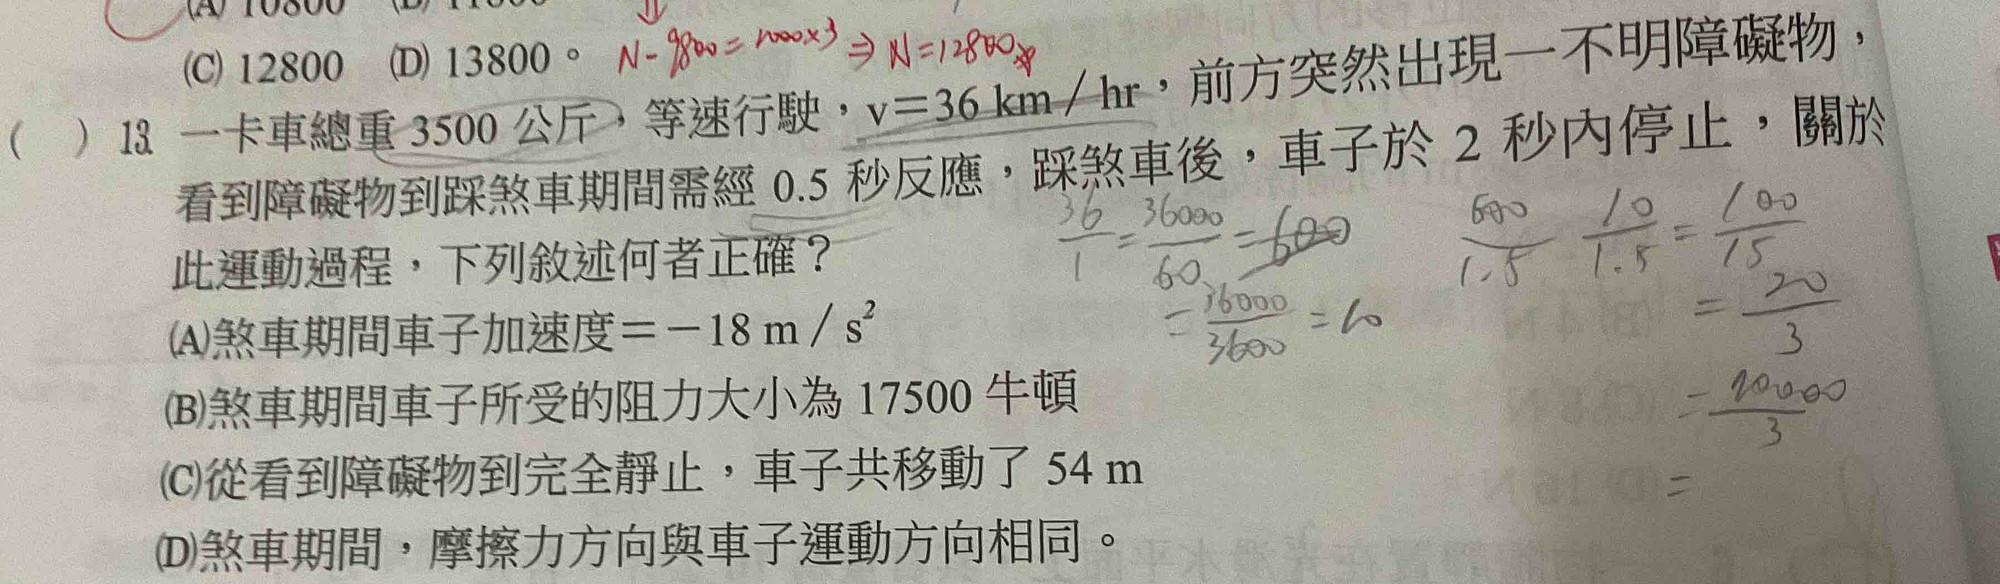 (A) 10800
(C) 12800 (D) 13800。 N-9800=1000×3⇒N=12800
( ) 13. 一卡車總重 3500 公斤，等速行駛，v＝36 km／hr，前方突然出現一不明障礙物，
看到障礙物到踩煞車期間需經 0.5 秒反應，踩煞車後，車子於 2 秒內停止，關於
此運動過程，下列敘述何者正確？
36/1 = 36000/60 = 600
= 36000/3600 = 10
600/1.5 10/1.5 = 100/15
= 20/3
= 20000/3
=
(A)煞車期間車子加速度＝－18 m／s²
(B)煞車期間車子所受的阻力大小為 17500 牛頓
(C)從看到障礙物到完全靜止，車子共移動了 54 m
(D)煞車期間，摩擦力方向與車子運動方向相同。